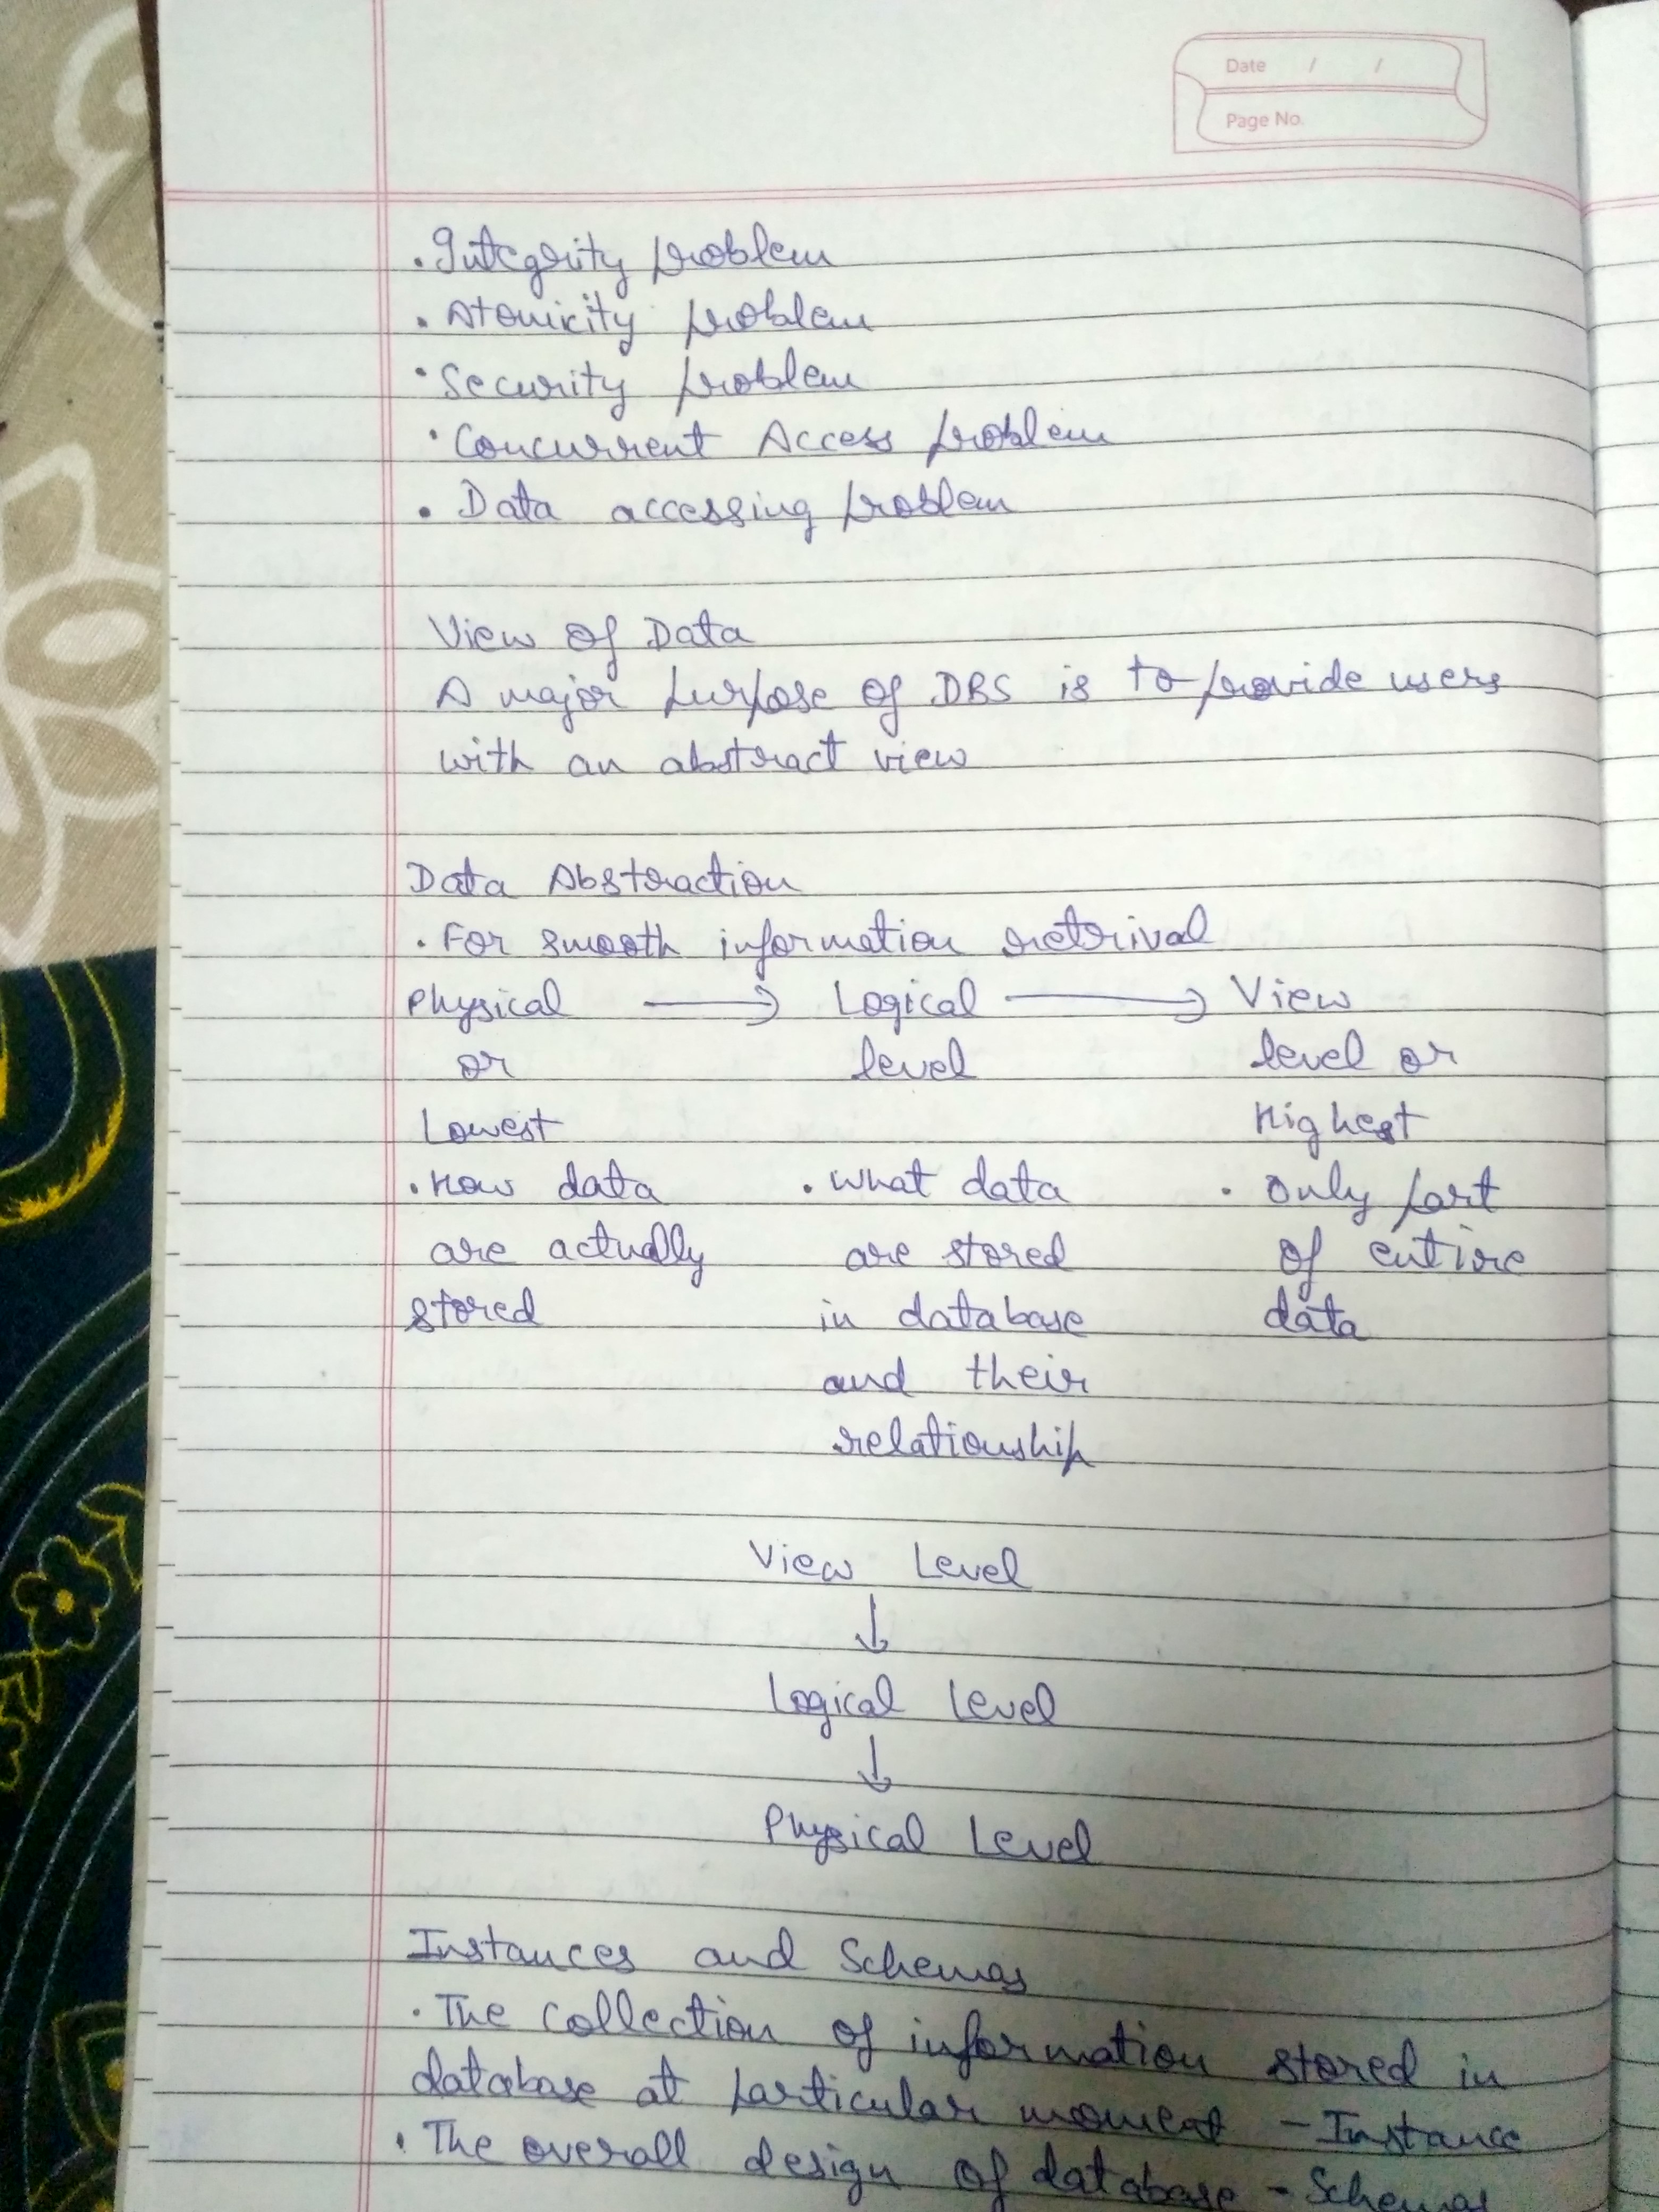 Date / /
Page No.
. Integrity problem
. Atomicity problem
. Security problem
. Concurrent Access problem
. Data accessing problem
View of Data
A major purpose of DBS is to provide users
with an abstract view
Data Abstraction
. For smooth information retrival
Physical → Logical → View
or level level or
Lowest Highest
. How data . what data . Only part
are actually are stored of entire
stored in database data
and their
relationship
View Level
↓
Logical Level
↓
Physical Level
Instances and Schemas
. The collection of information stored in
database at particular moment - Instance
. The overall design of database - Schemas